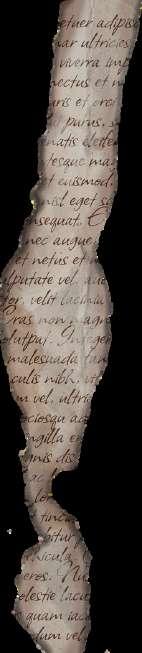 etuer adipisc
nar ultricies
viverra imp
nectus et n
uris et orci
purus, s
enatis eleife
tesque ma
t euismod,
nisl eget s
nsequat. C
nec augue
et netus et
lputate vel, auc
velit lacinia
ras non magn
olutpat. Integer
malesuada fam
culis nibh, ut
m vel, ultri
ociosqu ad
ngilla en
gnis dis
ac
lor
tinci
bitur
hicula
eros. Nu
olestie lacu
s quam iac
dum vel